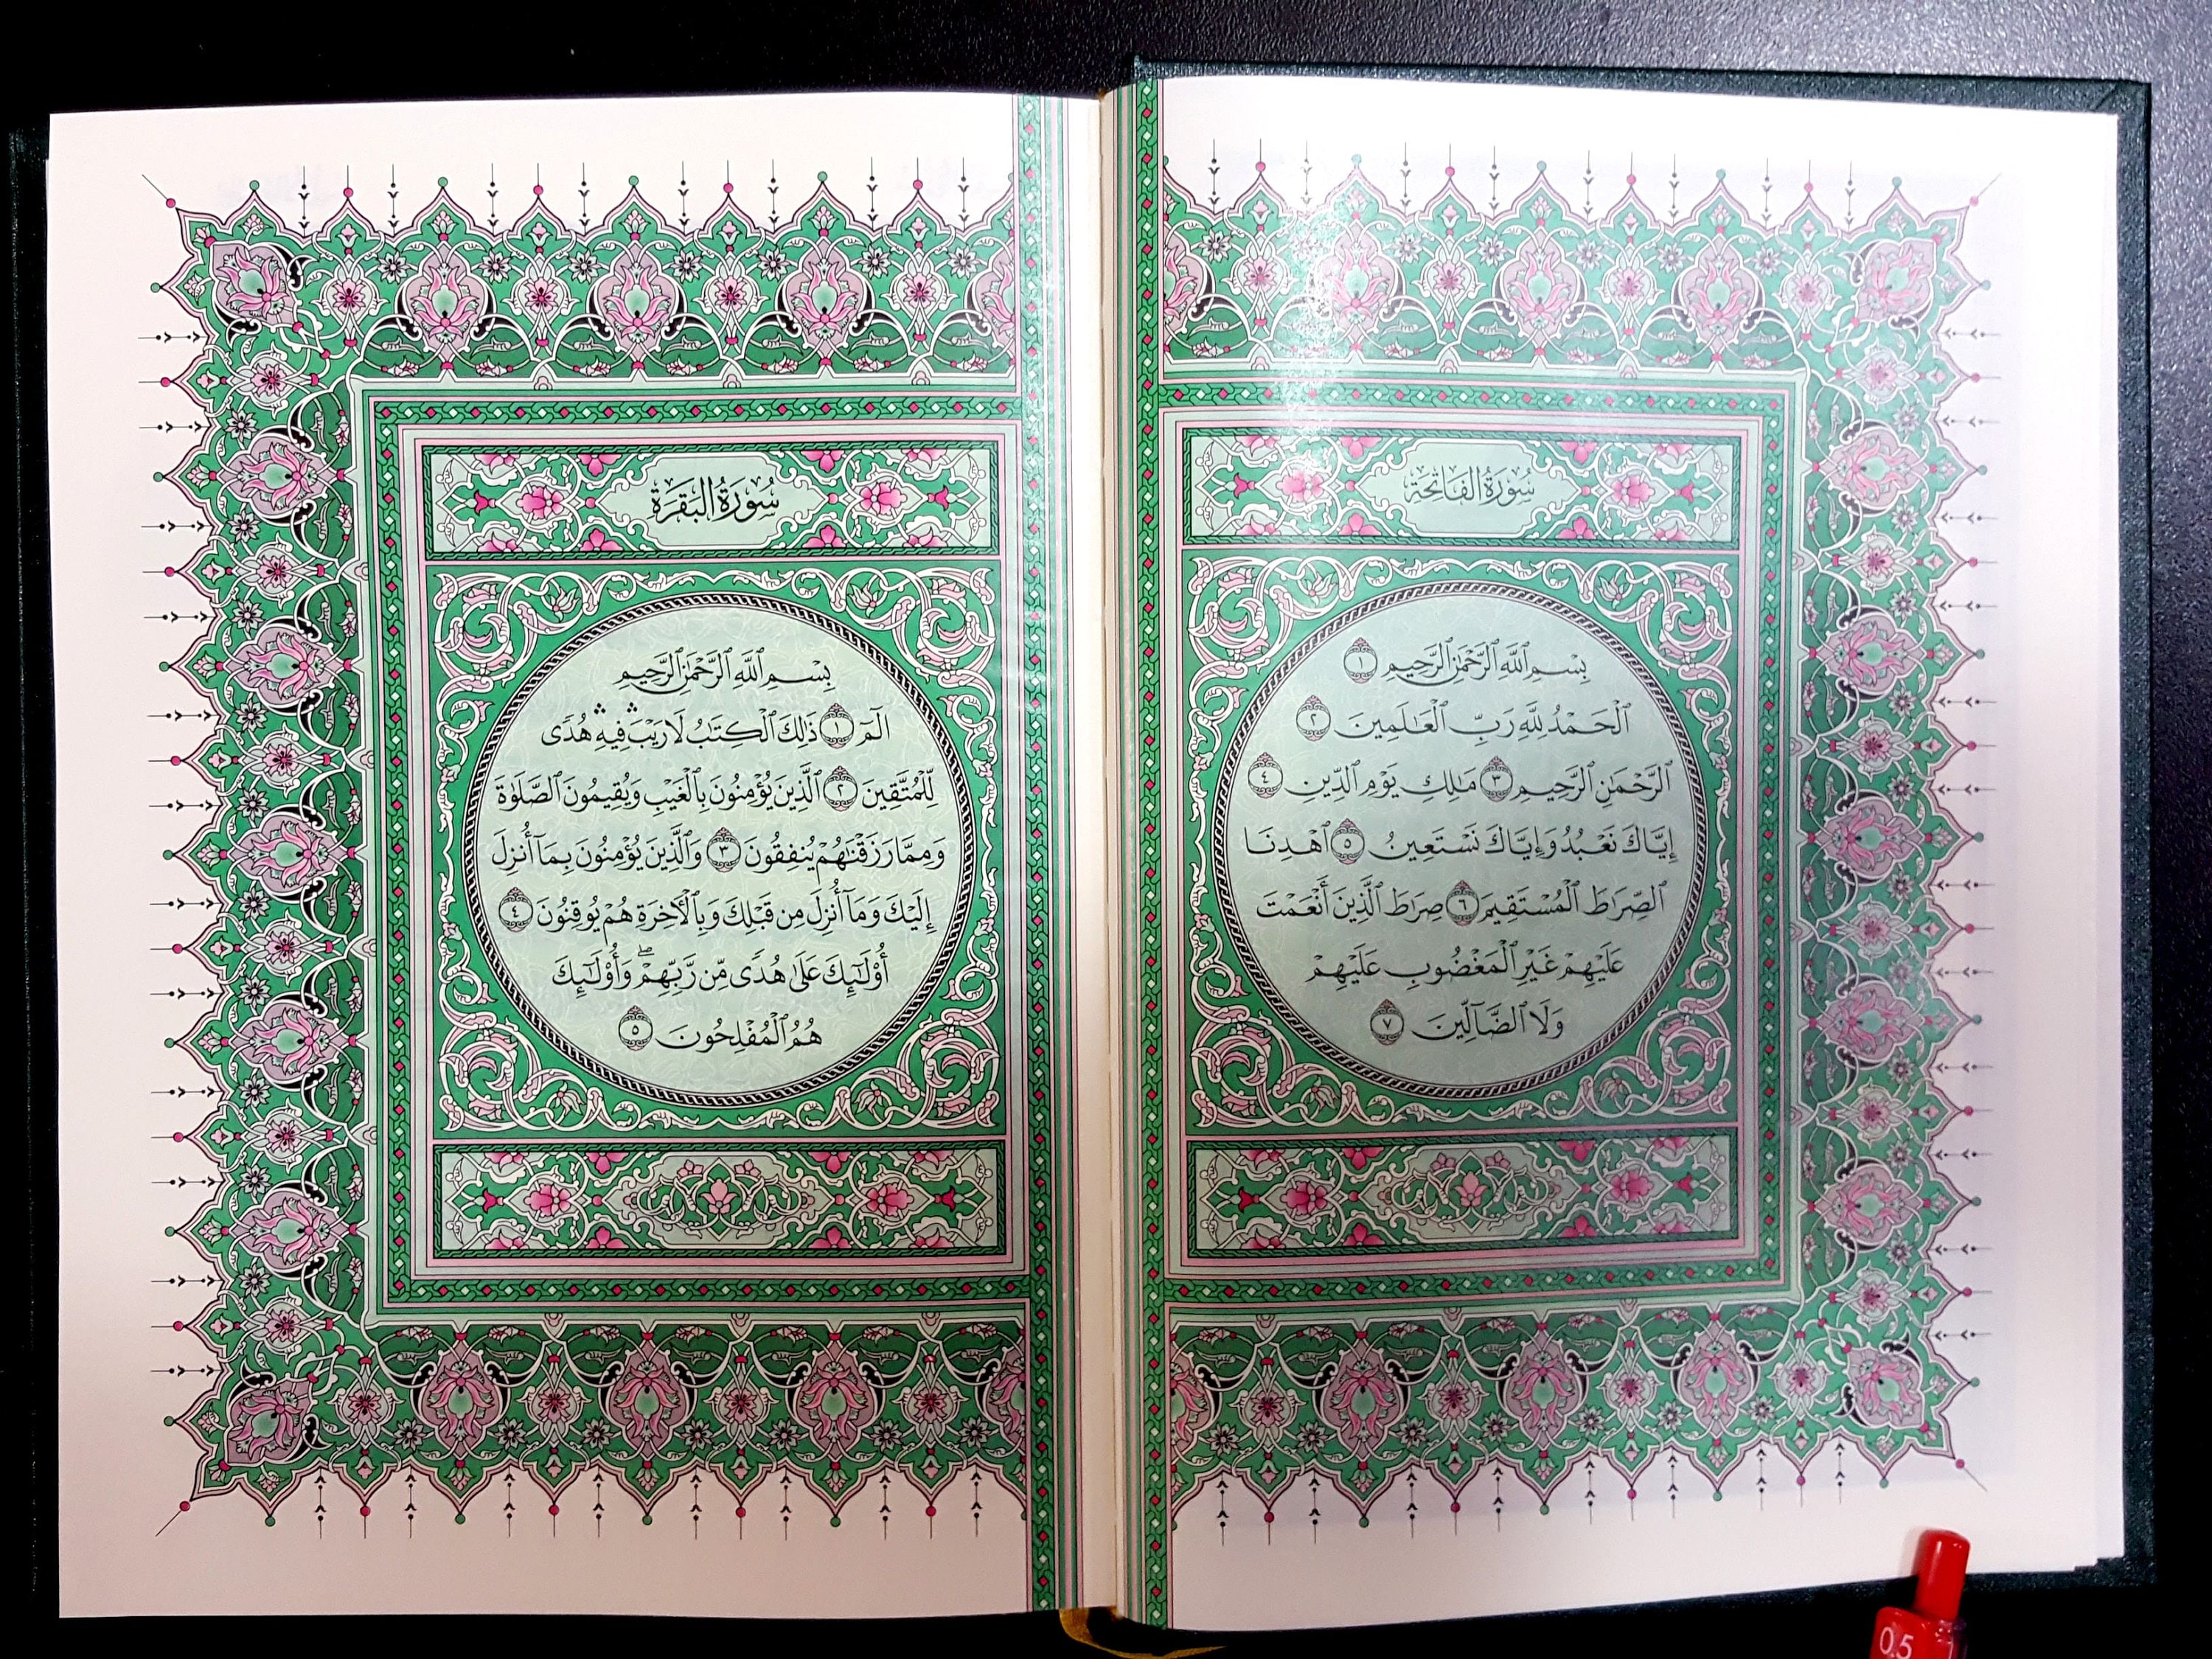 سُورَةُ الفَاتِحَة
بِسْمِ ٱللَّهِ ٱلرَّحْمَٰنِ ٱلرَّحِيمِ ١
ٱلْحَمْدُ لِلَّهِ رَبِّ ٱلْعَٰلَمِينَ ٢
ٱلرَّحْمَٰنِ ٱلرَّحِيمِ ٣ مَٰلِكِ يَوْمِ ٱلدِّينِ ٤
إِيَّاكَ نَعْبُدُ وَإِيَّاكَ نَسْتَعِينُ ٥ ٱهْدِنَا
ٱلصِّرَٰطَ ٱلْمُسْتَقِيمَ ٦ صِرَٰطَ ٱلَّذِينَ أَنْعَمْتَ
عَلَيْهِمْ غَيْرِ ٱلْمَغْضُوبِ عَلَيْهِمْ
وَلَا ٱلضَّآلِّينَ ٧
سُورَةُ البَقَرَةِ
بِسْمِ ٱللَّهِ ٱلرَّحْمَٰنِ ٱلرَّحِيمِ
الٓمٓ ١ ذَٰلِكَ ٱلْكِتَٰبُ لَا رَيْبَۛ فِيهِۛ هُدًى
لِّلْمُتَّقِينَ ٢ ٱلَّذِينَ يُؤْمِنُونَ بِٱلْغَيْبِ وَيُقِيمُونَ ٱلصَّلَوٰةَ
وَمِمَّا رَزَقْنَٰهُمْ يُنفِقُونَ ٣ وَٱلَّذِينَ يُؤْمِنُونَ بِمَآ أُنزِلَ
إِلَيْكَ وَمَآ أُنزِلَ مِن قَبْلِكَ وَبِٱلْأَخِرَةِ هُمْ يُوقِنُونَ ٤
أُوْلَٰٓئِكَ عَلَىٰ هُدًى مِّن رَّبِّهِمْۖ وَأُوْلَٰٓئِكَ
هُمُ ٱلْمُفْلِحُونَ ٥
0.5